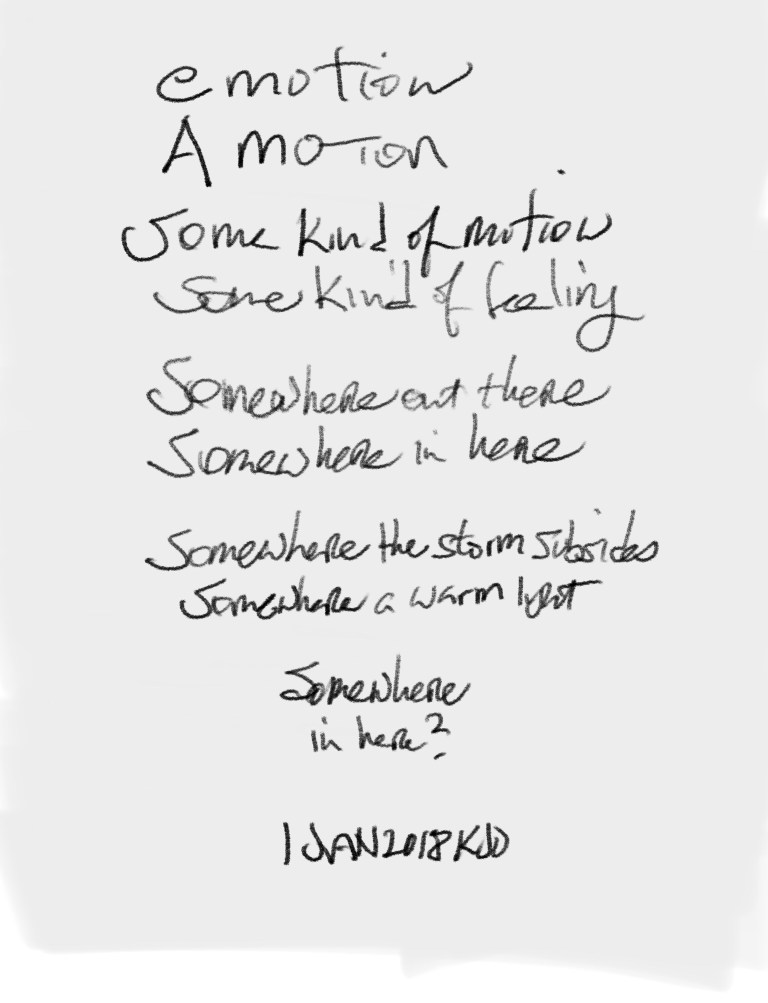 emotion
A motion
Some kind of motion
Some kind of feeling
Somewhere out there
Somewhere in here
Somewhere the storm subsides
Somewhere a warm light
Somewhere
in here?
1JAN2018KJD